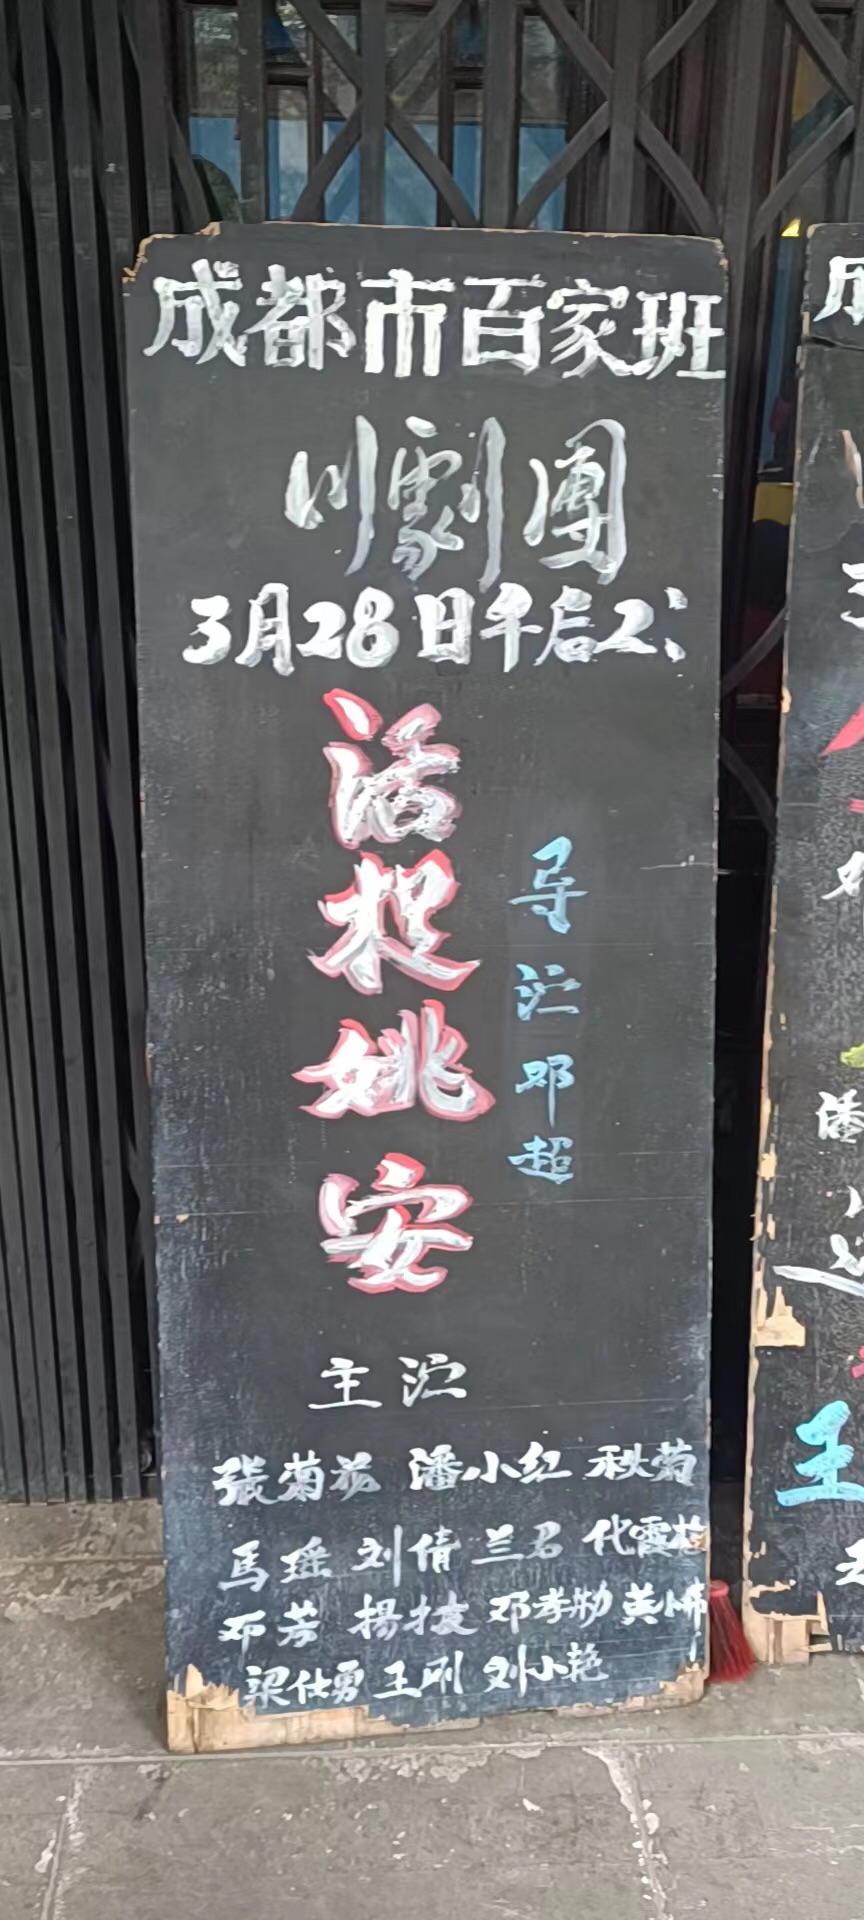 成都市百家班
川劇團
3月28日午后2:
活捉姚安
导演邓超
主演
張菊花 潘小红 秋菊
馬瑶 刘倩 兰君 代霞
邓芳 揚友 邓孝 黄小
梁仕勇 王刚 刘小艳
潘
王